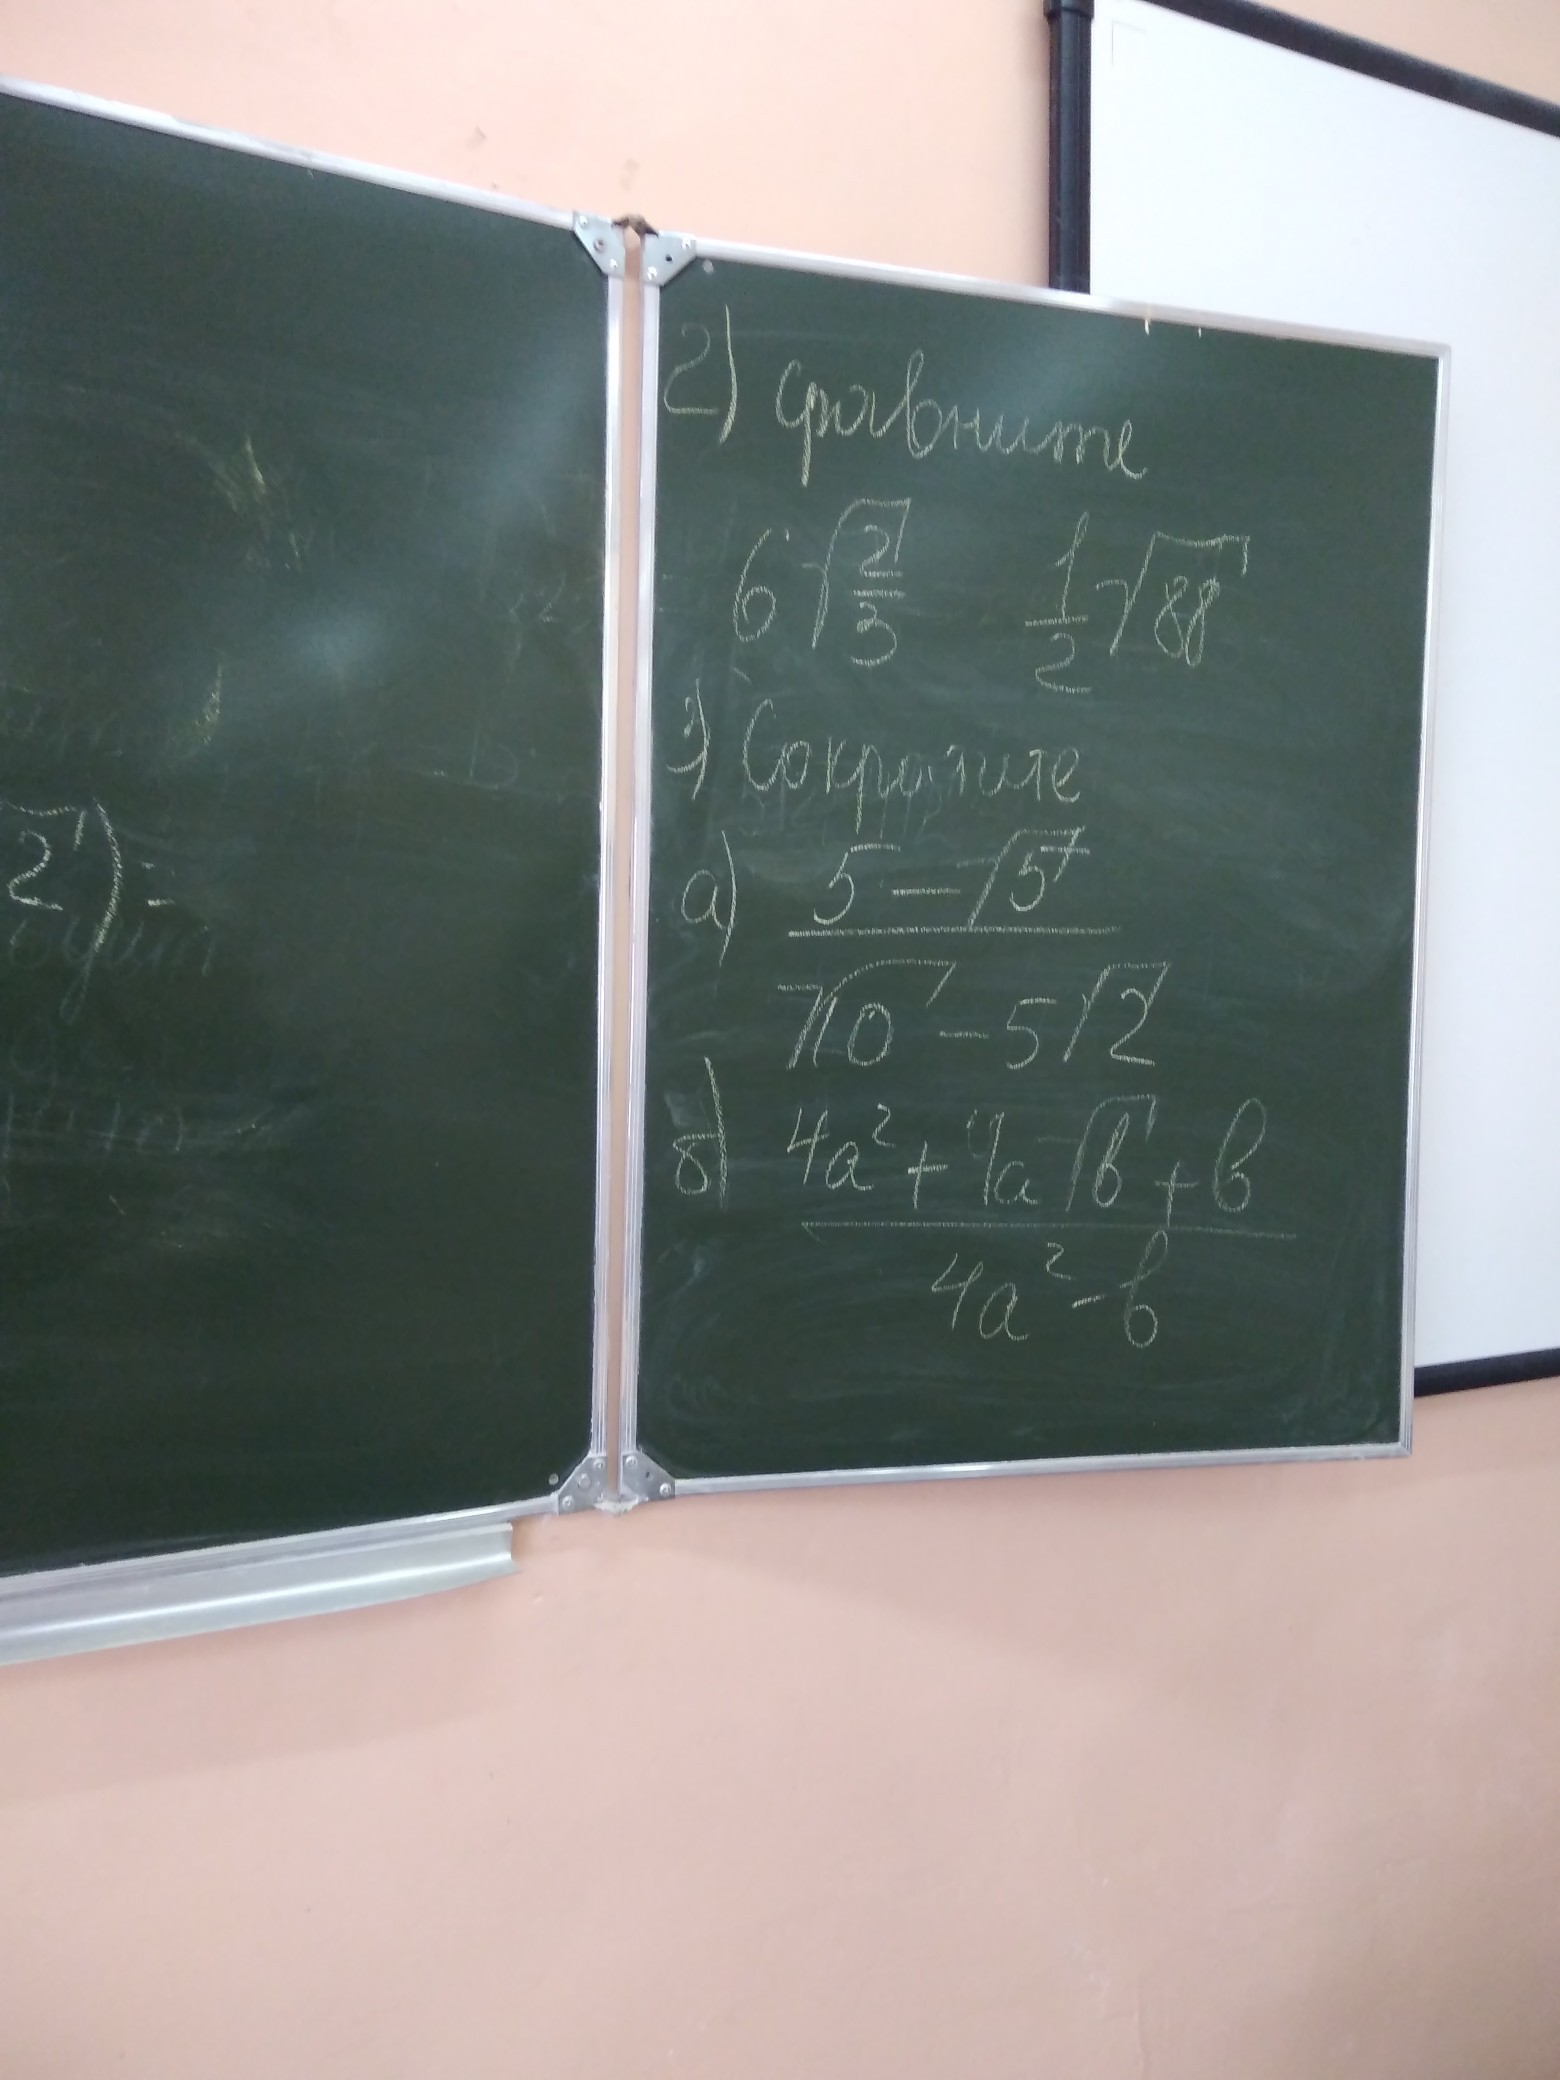 √2) =
2) Сравните
6√(2/3) 1/2 √88
3) Сократите
а) (5 - √5)/(√10 - 5√2)
б) (4a² + 4a√b + b)/(4a² - b)